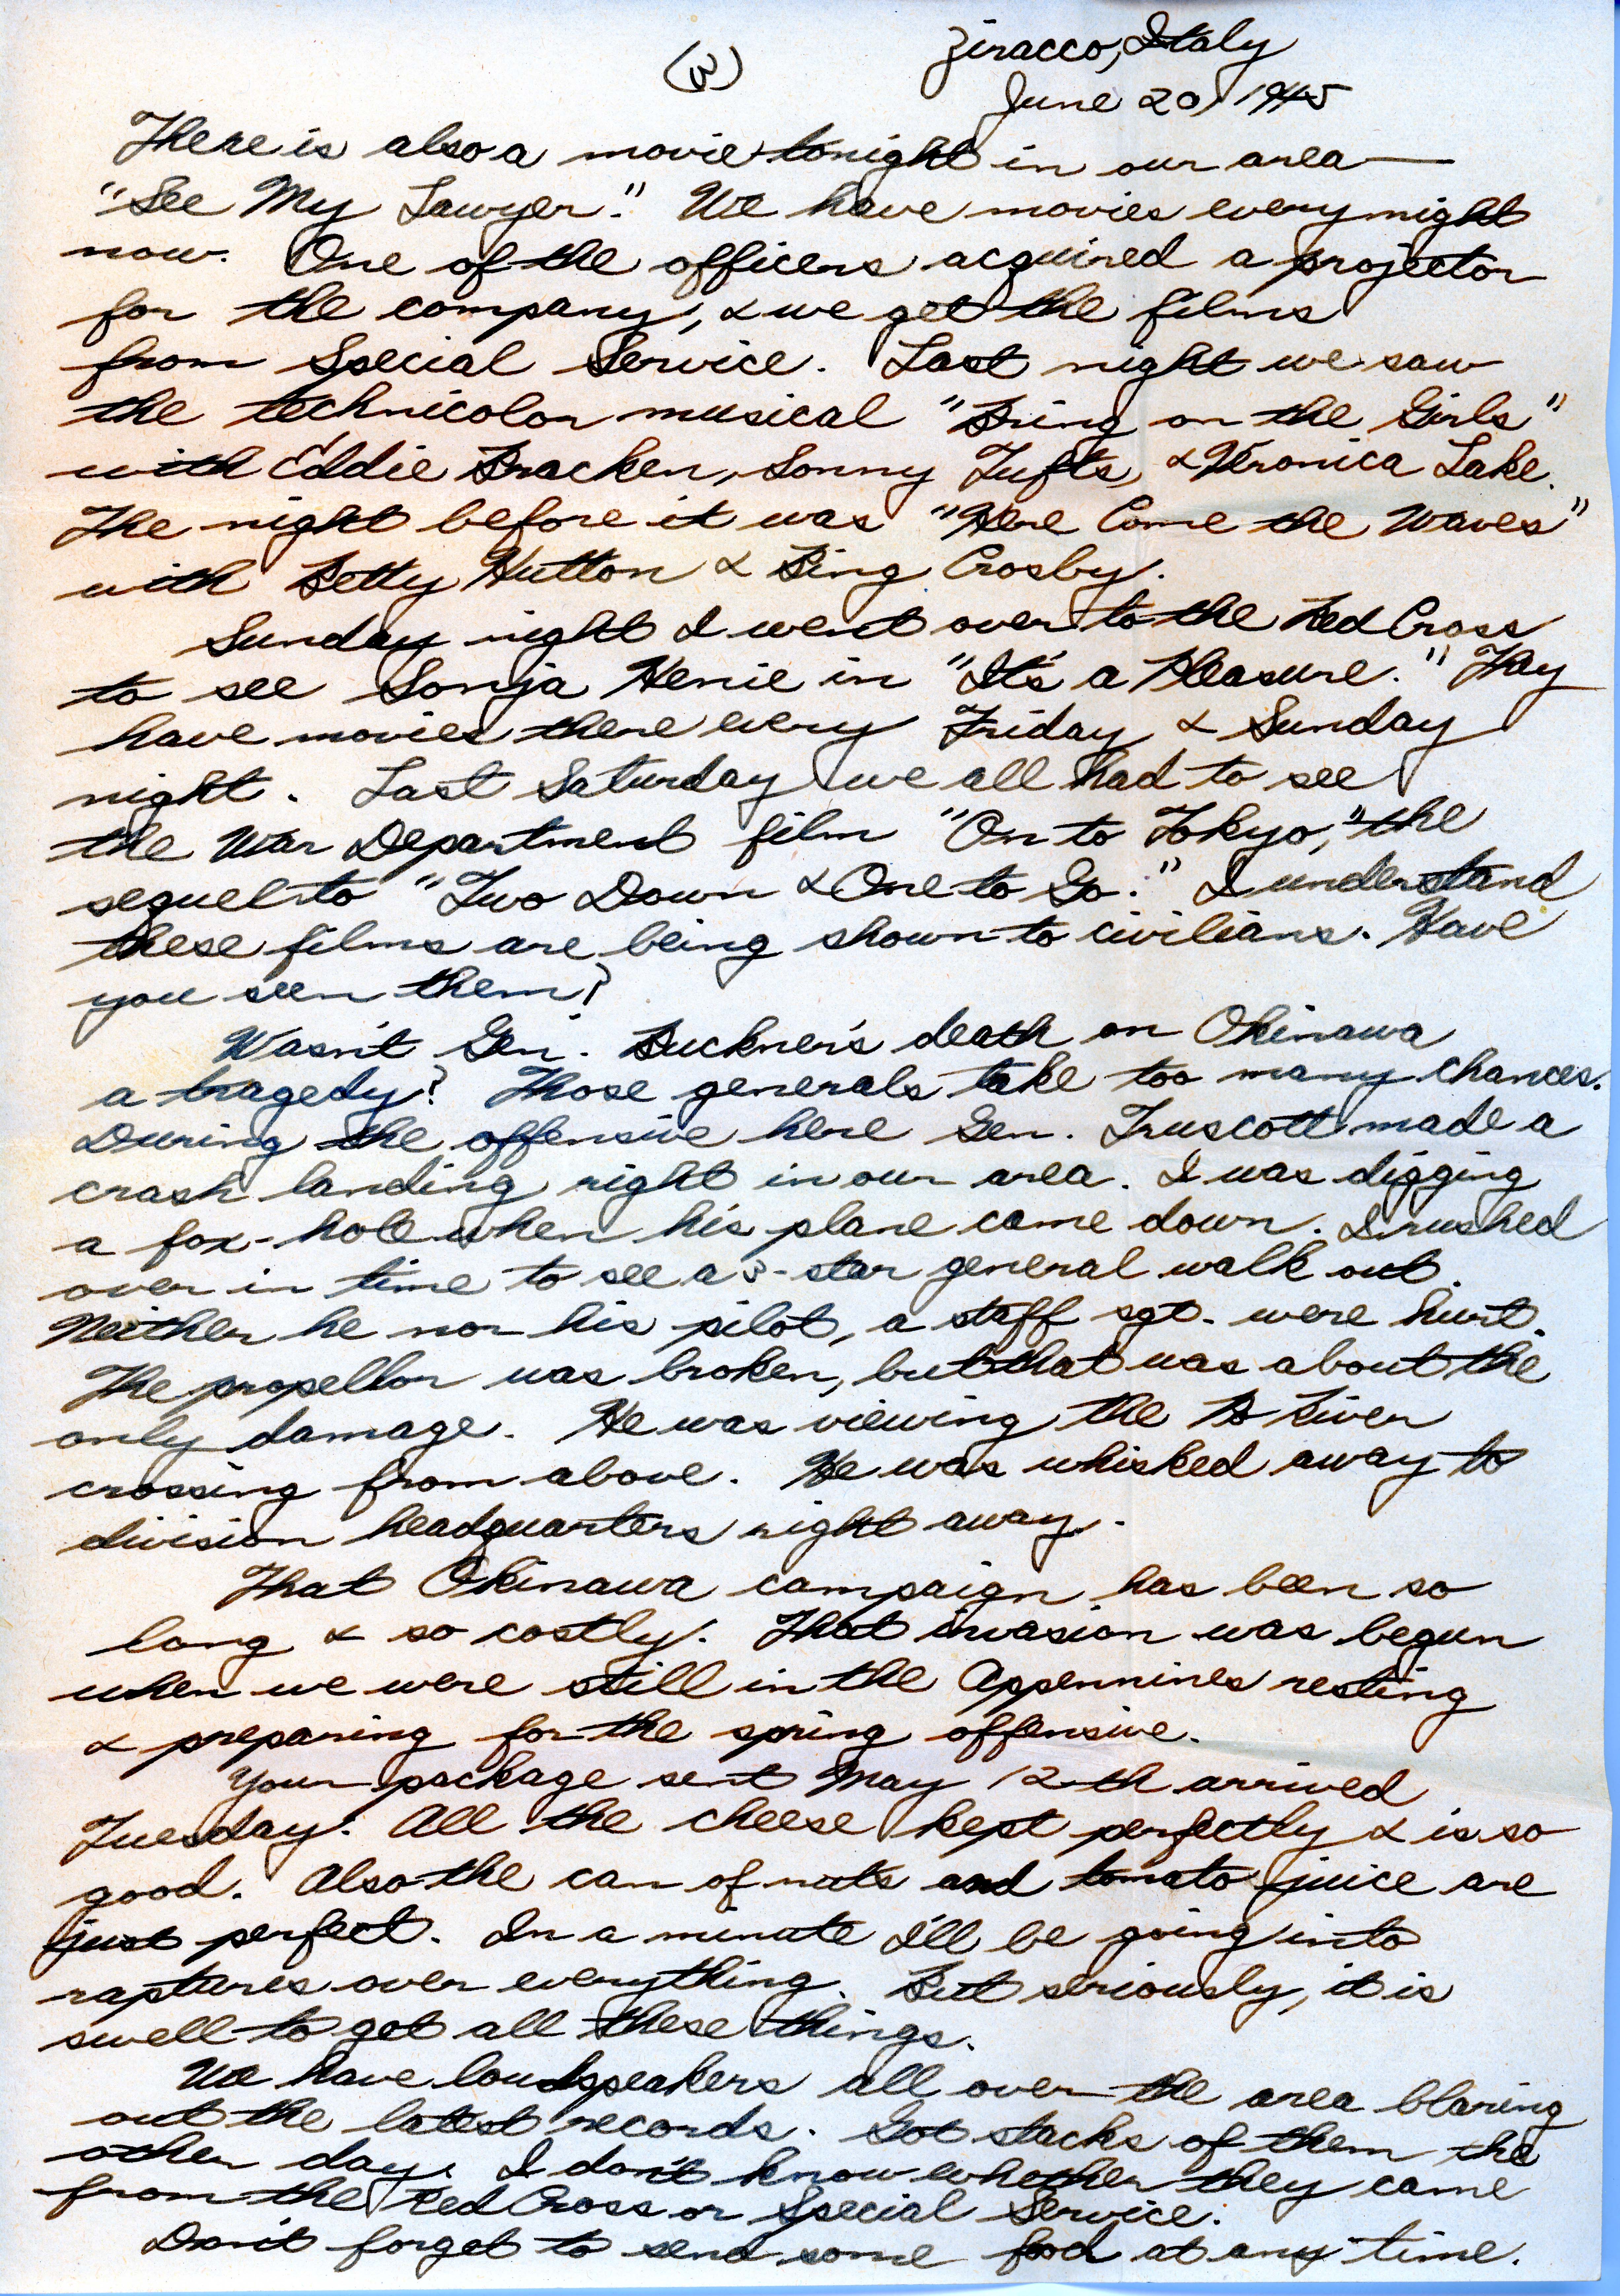 (3)
Ziracco, Italy
June 20, 1945
There is also a movie tonight in our area —
"See My Lawyer." We have movies every night
now. One of the officers acquired a projector
for the company, & we get the films
from Special Service. Last night we saw
the technicolor musical "Bring on the Girls"
with Eddie Bracken, Sonny Tufts, & Veronica Lake.
The night before it was "Here Come the Waves"
with Betty Hutton & Bing Crosby.
Sunday night I went over to the Red Cross
to see Sonja Henie in "It's a Pleasure." They
have movies there every Friday & Sunday
night. Last Saturday we all had to see
the War Department film "On to Tokyo," the
sequel to "Two Down & One to Go." I understand
these films are being shown to civilians. Have
you seen them?
Wasn't Gen. Buckner's death on Okinawa
a tragedy? Those generals take too many chances.
During the offensive here Gen. Truscott made a
crash landing right in our area. I was digging
a fox-hole when his plane came down. I rushed
over in time to see a 3-star general walk out.
Neither he nor his pilot, a staff sgt. were hurt.
The propellor was broken, but that was about the
only damage. He was viewing the Po River
crossing from above. He was whisked away to
division headquarters right away.
That Okinawa campaign has been so
long & so costly. That invasion was begun
when we were still in the Appennines resting
& preparing for the spring offensive.
Your package sent May 12th arrived
Tuesday. All the cheese kept perfectly & is so
good. Also the can of nuts and tomato juice are
just perfect. In a minute I'll be going into
raptures over everything. But seriously, it is
swell to get all these things.
We have loudspeakers all over the area blaring
out the latest records. Got stacks of them the
other day. I don't know whether they came
from the Red Cross or Special Service.
Don't forget to send some food at any time.